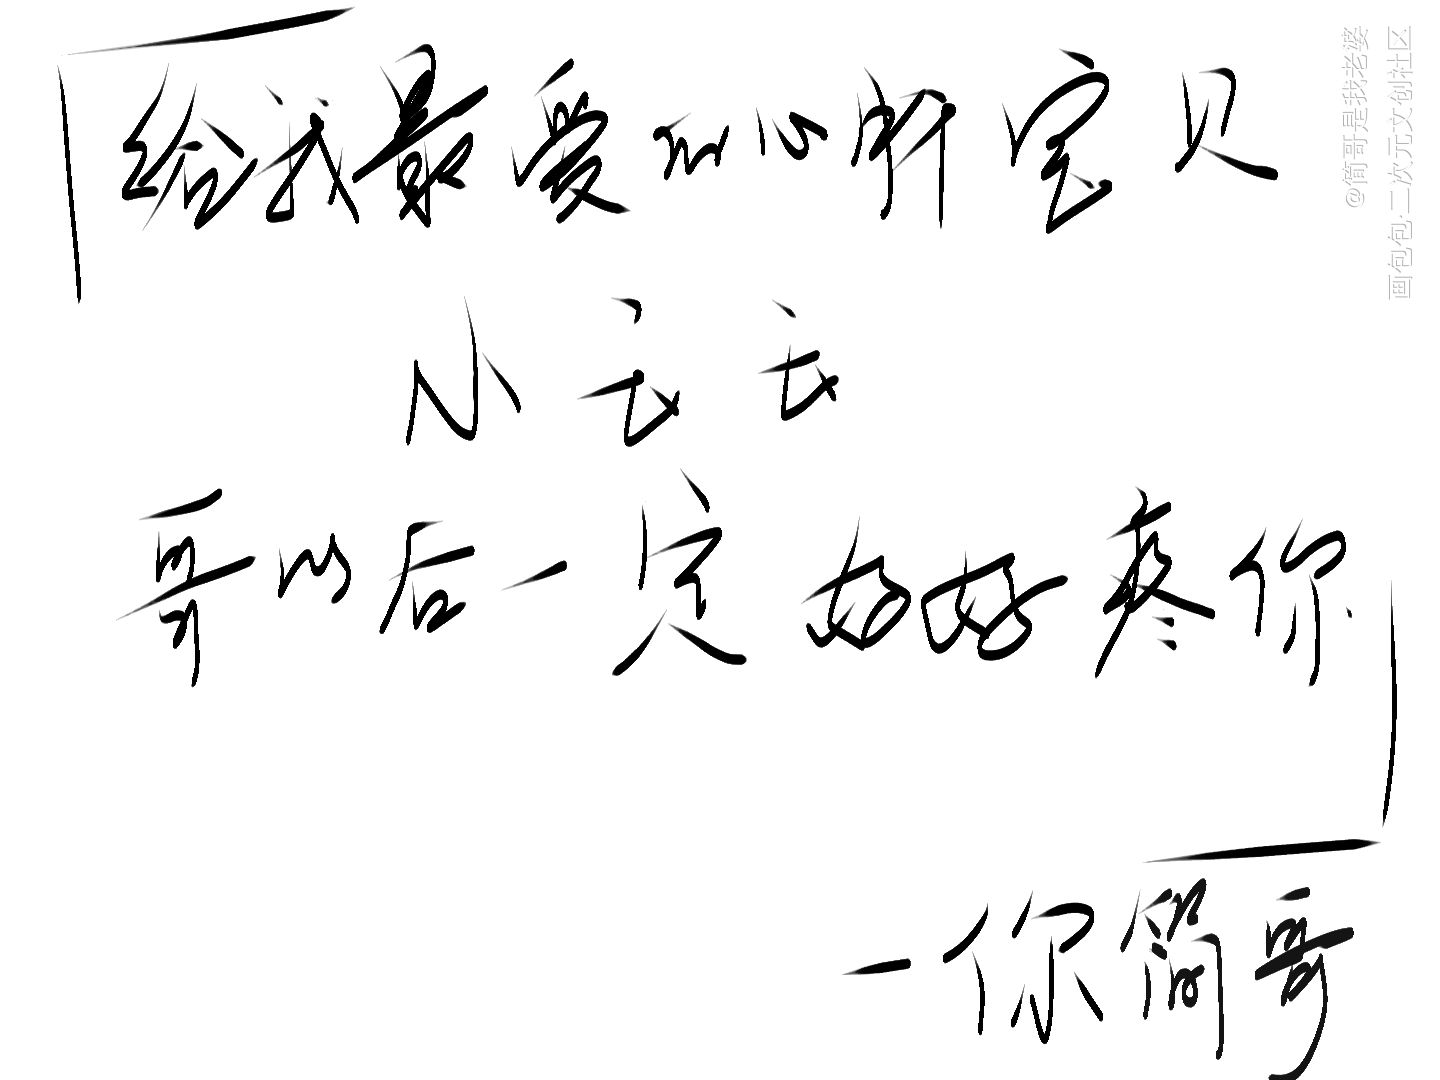 给我最爱的心肝宝贝
小云云
哥以后一定好好疼你
一你简哥
@简哥是我老婆
画包包·二次元文创社区